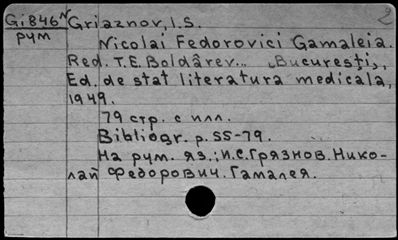 Gi846N Griaznov, I.S. 2
рум
Nicolai Fedorovici Gamaleia.
Red. T.E. Boldârev... "Bucureşti",
Ed. de stat literatura medicala,
1949.
79 стр. с илл.
Bibliogr. p. 55-79.
На рум. яз.; И.С. Грязнов. Нико-
лай Федорович. Гамалея.